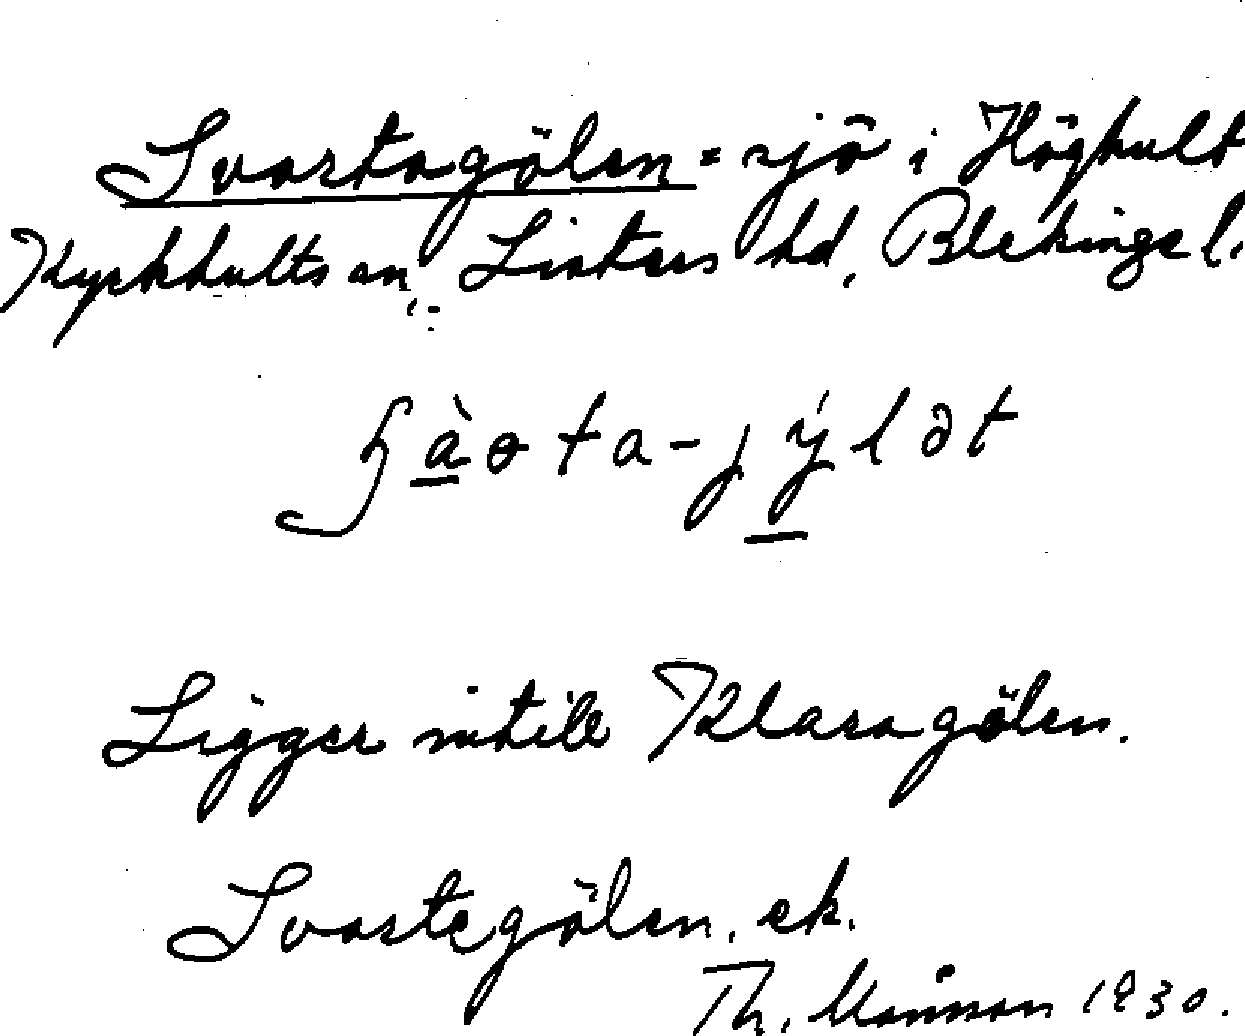 Svartagölen = sjö i Höghult
Kyrkhults sn, Listers hd, Blekinge l.
Ligger intill Klaragölen.
Svartegölen, ek.
Th. Månson 1930.